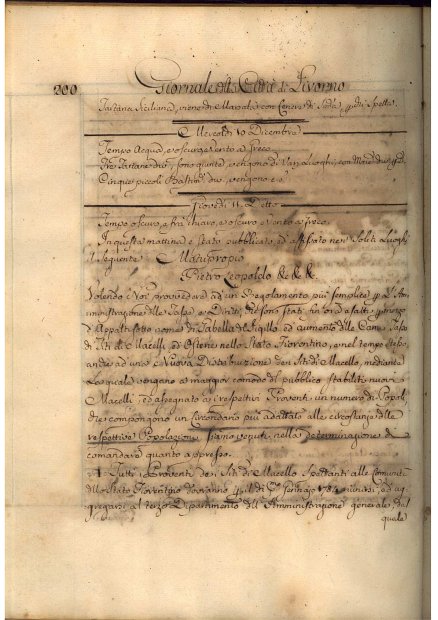 200 Giornale della Città di Livorno
Tartana Siciliana, viene di Marsalia con Cenere di Soda, per di Spetta.
Mercoldi 10 Dicembre
Tempo Acqua, e oscuro e vento a Greco
Tre Tartane due, sono giunte, e vengono di Varj Luoghi, con Merci
Cinque piccoli Bastimti. due, vengono
Giovedi 11. Detto
Tempo oscuro, e fra chiaro, e oscuro e Vento a Greco.
In questa mattina è stato pubblicato ed affissato nei Soliti Luoghi
il Seguente Motuproprio
Pietro Leopoldo &. &. &.
Volendo Noi provvedere ad un Regolamento più semplice per l'Am
ministrazione delle Tasse, e Diritti, che sono stati fin'ora esatti
d'Appalto sotto nome di Tabella di Sigillo ed aumento delle Came Tasse
di Jus di Macelli, ed Osterie nello Stato Fiorentino, e nel tempo stesso,
anche ad una Nuova Distribuzione dei Jus di Macello, mediante
la quale vengano a maggior comodo del pubblico stabiliti nuovi
Macelli ed assegnato ai respettivi Proventi un numero di Popoli
che compongono un Circondario più adattato alle circostanze delle
respettive Popolazioni siamo venuti nella determinazione di
comandare quanto appresso.
1. Tutti i Proventi dei Jus di Macello Spettanti alle Comunità
dello Stato Fiorentino dovranno per il di Pmo. Gennajo 1784 riunirsi, ed ag
gregarsi al terzo Dipartimento dell'Amministrazione generale, dal
quale